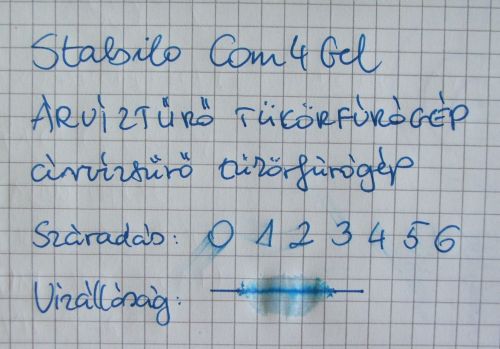 Stabilo Com4Gel
ÁRVÍZTŰRŐ TÜKÖRFÚRÓGÉP
árvíztűrő tükörfúrógép
Száradás: 0 1 2 3 4 5 6
Vízállóság: